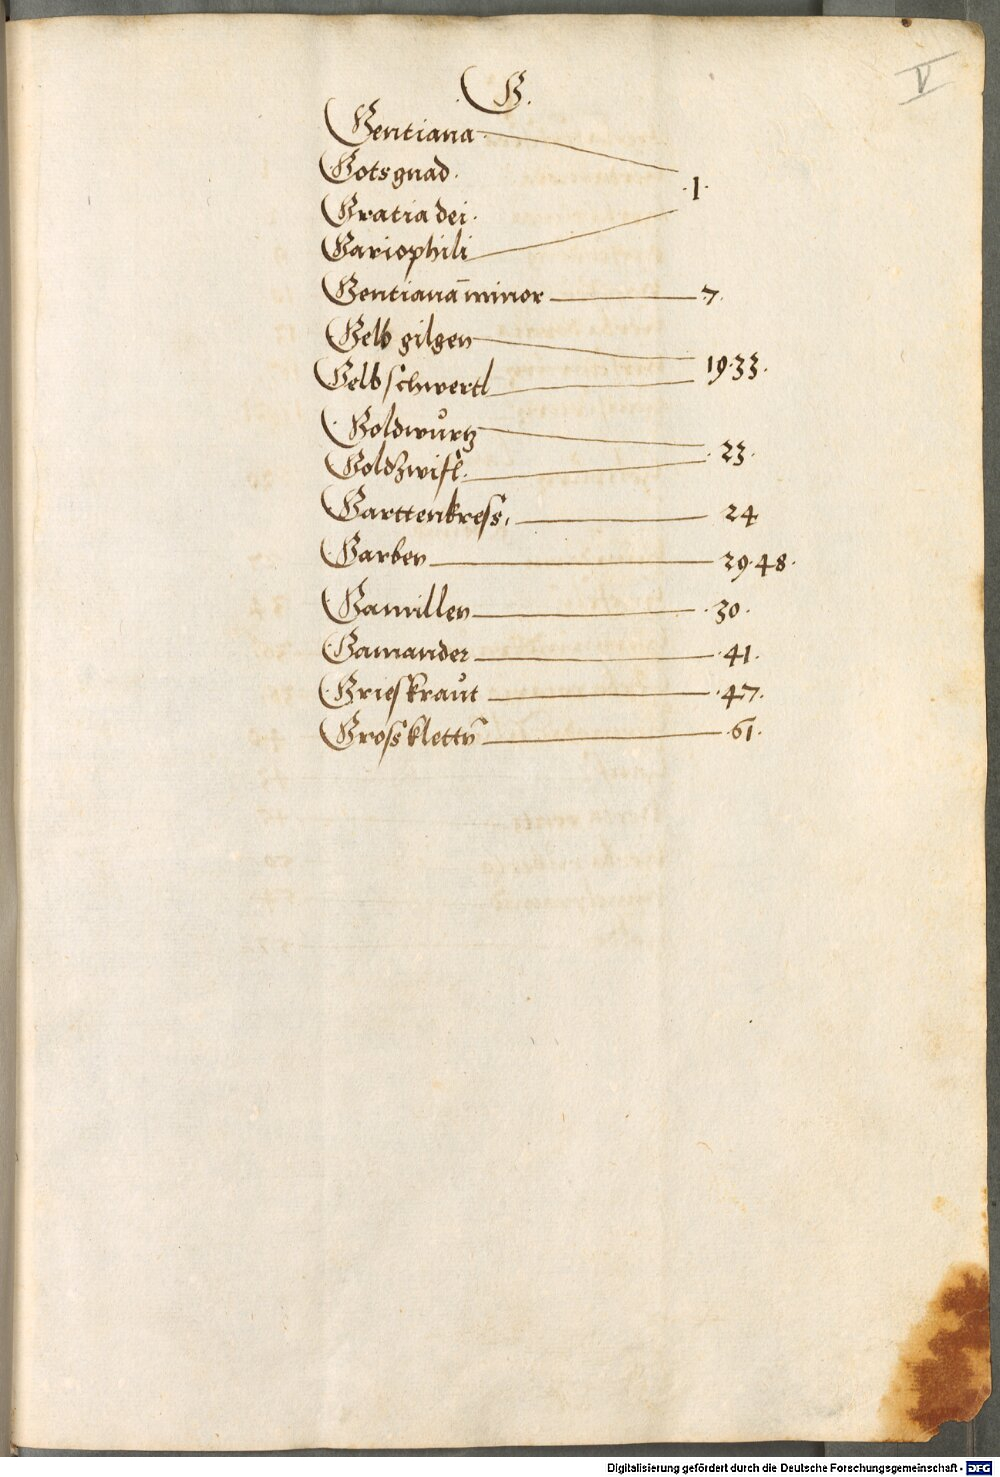 V
G.
Gentiana
Gotsgnad.
Gratia dei.
Gariophili
.1.
Gentiana minor 7.
Gelb gilgen
Gelbschwertl
19.33.
Goldwůrtz
Goldzwifl.
.23.
Garttenkress. 24
Garben 29.48.
Gamillen .30.
Gamander .41.
Grieskraůt .47.
Grossklettn̄ .61.
Digitalisierung gefördert durch die Deutsche Forschungsgemeinschaft - DFG